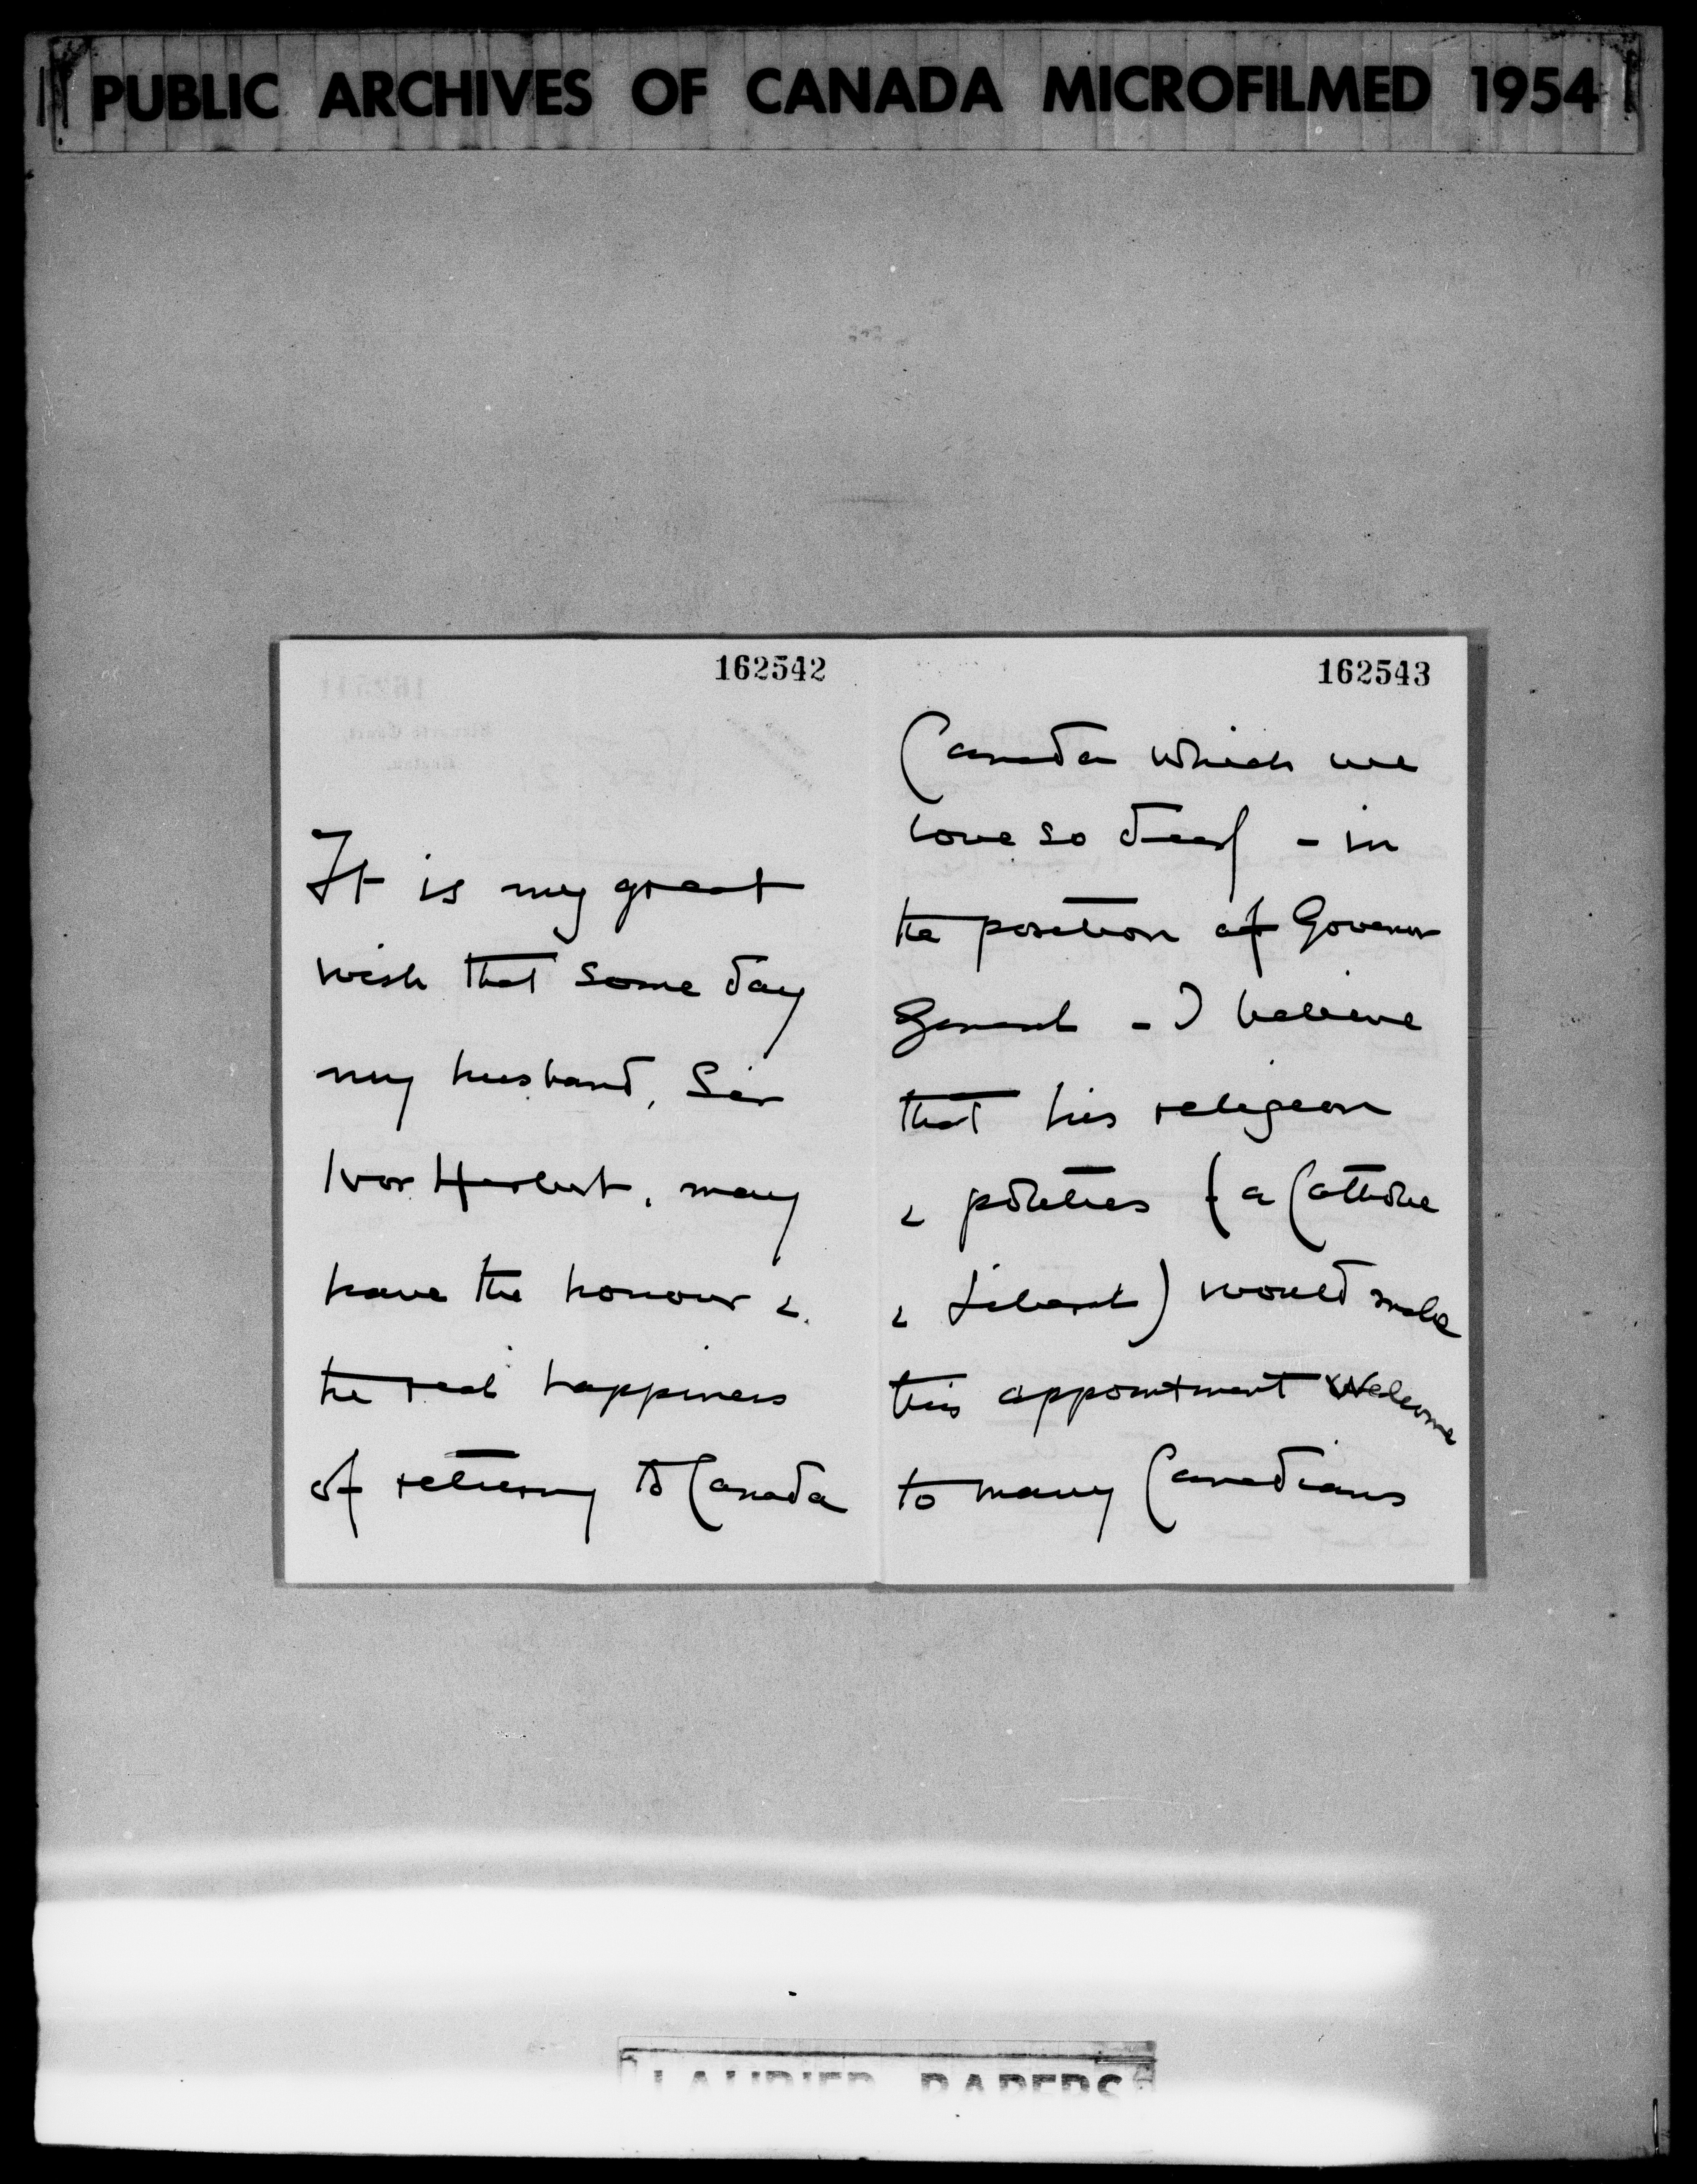 PUBLIC ARCHIVES OF CANADA MICROFILMED 1954
162542
It is my great
wish that some day
my husband, Sir
Ivor Herbert, may
have the honour &
the real happiness
of returning to Canada
162543
Canada which we
love so dearly - in
the position of Governor
General - I believe
that his religion
& politics (a Catholic
& Liberal) would make
this appointment welcome
to many Canadians
LAURIER PAPERS